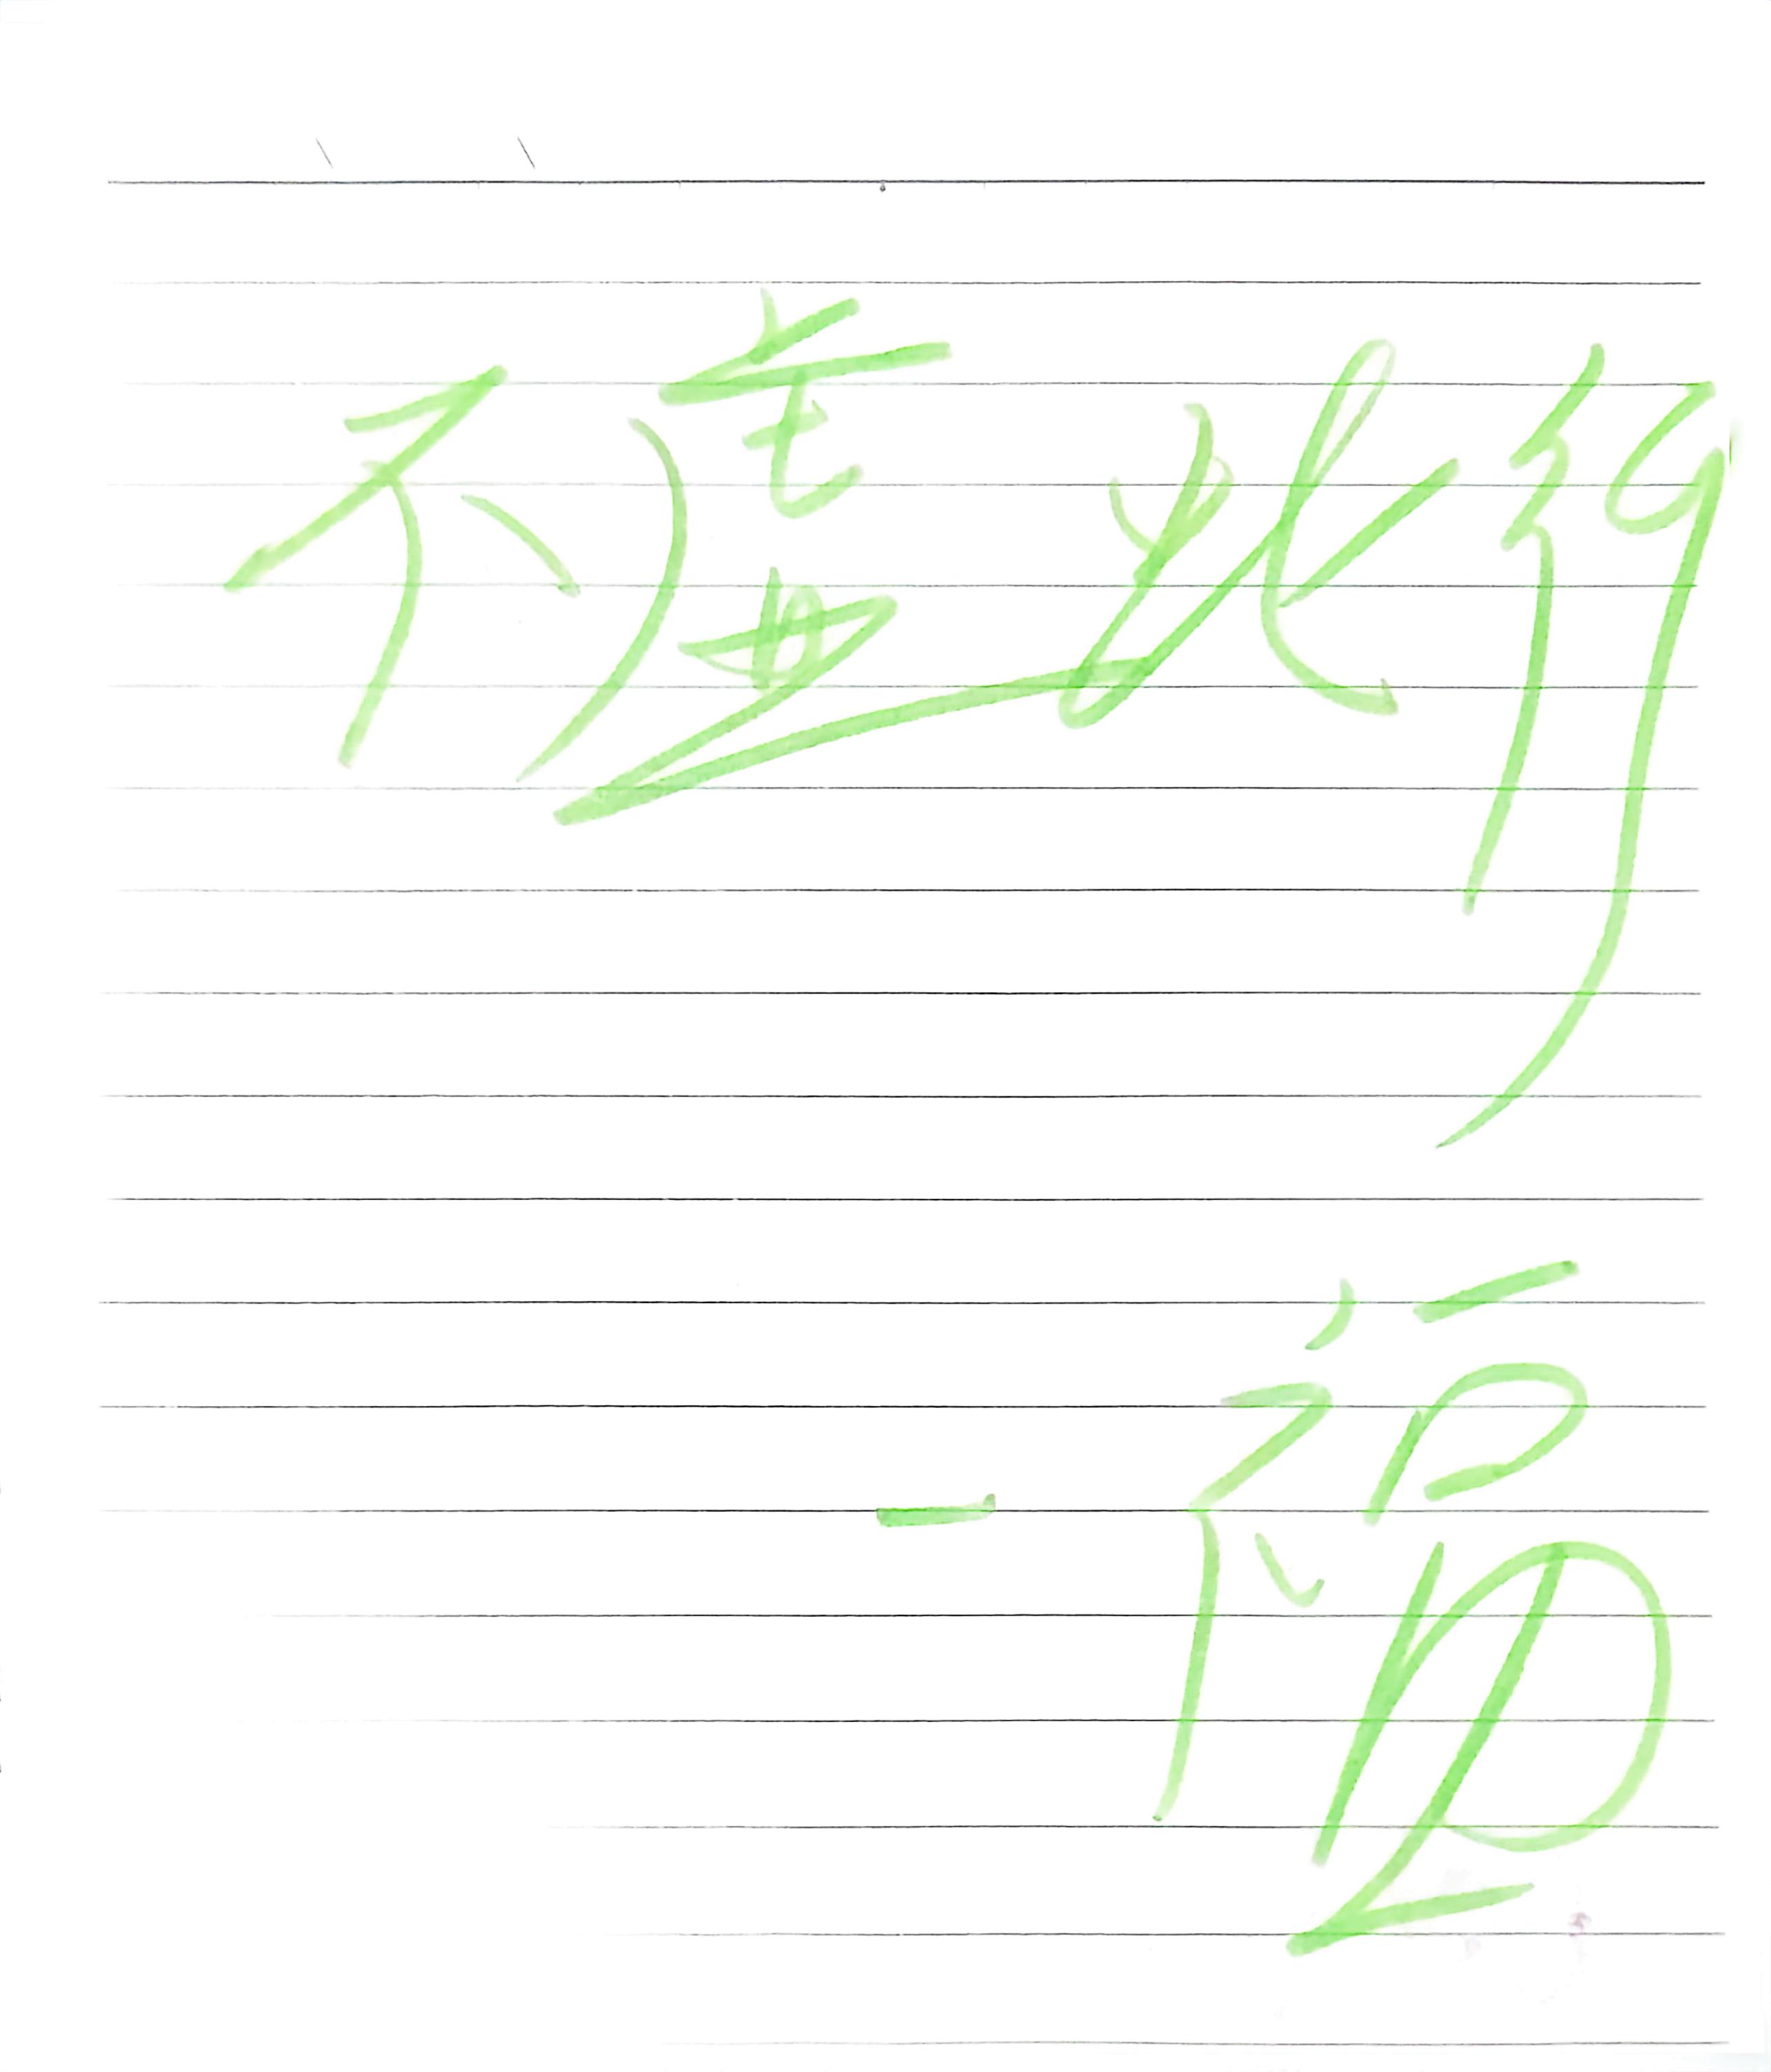 不虚此行
一福